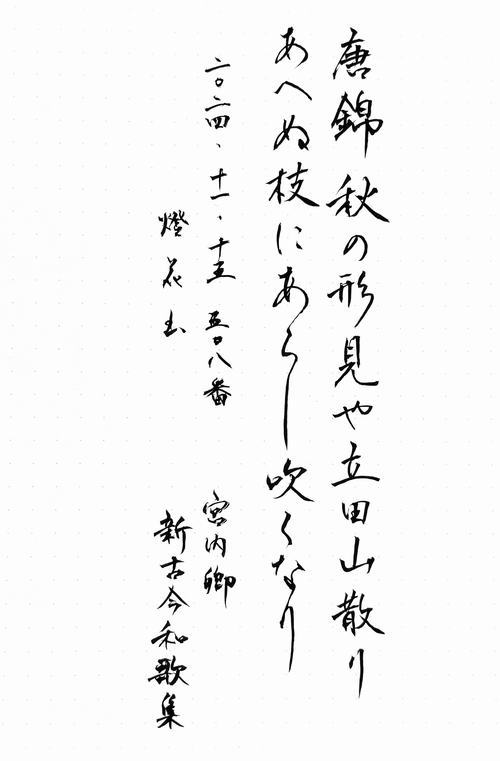 唐錦秋の形見や立田山散り
あへぬ枝にあらし吹くなり
二〇二四、十一、十五 五〇八番
宮内卿
燈花出
新古今和歌集